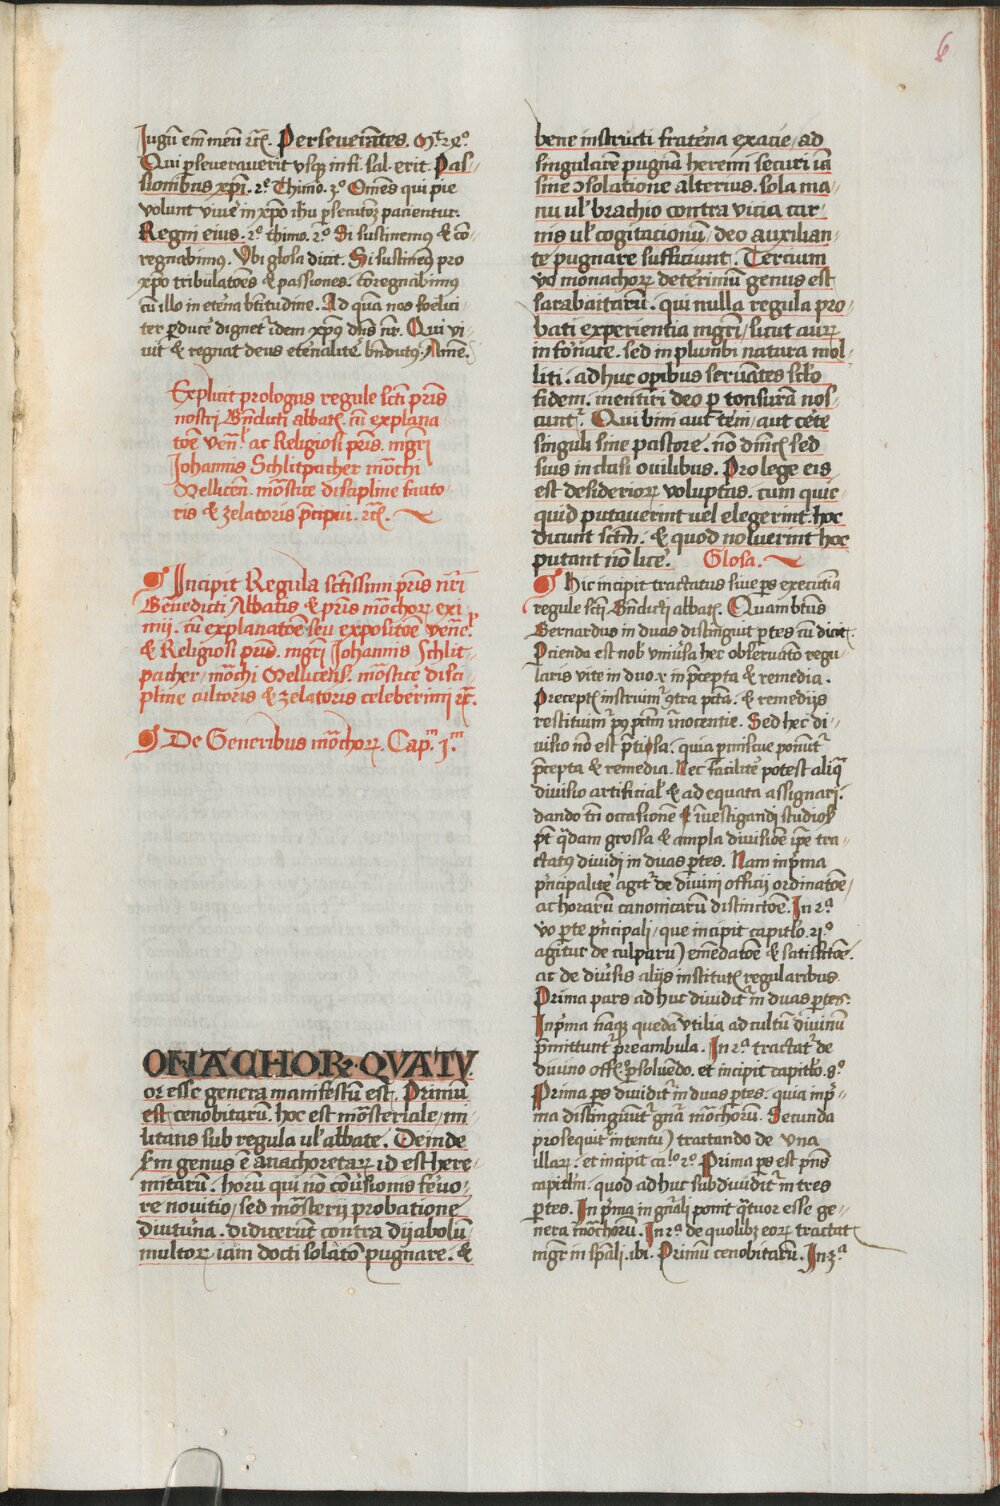 6
Jugū em̄ meū ⁊c̄. Perseverātes. Mᵗ. 24º.
Qui p̱severaverit vsq̨ in fi. sal. erit. Pas-
sionibus xp̄i. 2º Thimo. 3º Om̄es qui pie
volunt viue̾ in xp̄o ih̄u p̱secutōꝫ pacientur.
Regni eius. 2º thimo. 2º Si sustinemꝰ & cō-
regnabimꝰ. Vbi glosa dicit. Si sustinemꝰ pro
xp̄o tribulatōēs & passiones. cōregnabimꝰ
cū illo in ete̾na bt̄itudine. Ad quā nos foelici-
ter p̱duce̾ dignetᷣ idem xp̄ꝰ dn̄s nr̄. Qui vi-
uit & regnat deus ete̾nalite̾ bn̄dictꝰ. Amē.
Explicit prologus regule sct̄i pr̄is
nostri Bn̄dicti abbatꝭ. cū explana
tōē ven̄ˡ. ac Religiosi pr̄is. mgr̄i
Johannis Schlitpacher mōchi
Mellicen̄. mōstice discipline fauto-
ris & zelatoris p̄cipui. ⁊c̄.
Incipit Regula sct̄issimi pr̄is nr̄i
Benedicti Abbatis & pr̄is mōchoꝝ exi
mij. cū explanatōē seu expositōē venēˡ.
& Religiosi pr̄is. mgr̄i Johannis Schlit-
pacher, mōchi Mellicens̄. mōstice disci-
pline cultoris & zelatoris celebe̾rimj ⁊c̄.
De Generibus mōchoꝝ. Cap.ᵐ j.ᵐ
ONACHOR. QVATV
or esse genera manifestū est. Primū
est cenobitarū. hoc est mōsteriale, mi-
litans sub regula ul̕ abbate. Deinde
scd̄m genus ē anachoretaꝝ id est here-
mitarū. horū qui nō cōue̾sionis fe̾uo-
re novitio, sed mōsterij probatione
diutu̾na. didicerūt contra dijabolū
multoꝝ iam docti solatō pugnare. &
bene instructi frate̾na exacie, ad
singularē pugnā heremi securi iā
sine ↄsolatione alterius. sola ma-
nu ul̕ brachio contra vicia car-
nis ul̕ cogitacionū, deo auxilian-
te pugnare sufficiunt. Tercium
vo monachoꝝ dete̾rimū genus est
sarabaitarū. qui nulla regula pro-
bati experientia mgr̄i, sicut auꝝ
in fo̾nace. sed in plumbi natura mol-
liti. adhuc op̱ibus seruātes sclo̾
fidem. mentiri deo p̱ tonsurā nos-
cuntᷣ. Qui bini aut te̾ni, aut ce̾te
singuli sine pastore. nō dn̄icꝭ sed
suis inclusi ouilibus. Pro lege eis
est desiderioꝝ voluptas. cum quic-
quid putaverint uel elegerint. hoc
dicunt sct̄m. & quod noluerint hoc
putant nō lice̾. Glosa.
Hic incipit tractatus siue p̱s executiua
regule sct̄i Bn̄dicti abbatꝭ. Quam btūs
Bernardus in duas distinguit p̱tes cū dicit.
P̱cienda est nob̕ vniu̾sa hec obseruatō regu-
laris vite in duo. x in p̄cepta & remedia.
Preceptꝭ instruimᷣ ꝯtra pct̄a. & remedijs
restituimᷣ pꝰ pct̄m īnocentie. Sed hec di-
uisio nō est p̄tiosa. quia pmiscue ponūtᷣ
p̄cepta & remedia. Nec facilite̾ potest aliq̄
diuisio artificial̕ & adequata assignarj.
dando tn̄ occasionē īuestigandi studiosˡ
pt̄ q̄dam grossa & ampla diuisiōē ip̄e tra-
ctatꝰ diuidi in duas p̱tes. Nam in p̄ma
p̄ncipalite̾ agitᷣ de diuini officij ordinatōē,
ac horarū canonicarū distinctōē. In 2ª
vo p̱te p̄ncipali, que incipit capitl̕o. 21º
agitur de culparū emēdatōē & satisfctōē.
ac de diu̾sis alijs institutꝭ regularibus.
Prima pars adhuc diuiditᷣ in duas p̱tes.
In p̄ma nāq̨ quedā vtilia ad cultū diuinū
p̄mittuntᷣ preambula. In 2ª tractatᷣ de
diuino off̄. p̱soluendo. et incipit capitl̕o. 8º
Prima p̱s diuiditᷣ in duas p̱tes. quia in p̄-
ma distinguūtᷣ gn̄a mōchorū. Secunda
prosequitᷣ intentū tractando de vna
illaꝝ. et incipit ca.ˡº 2º. Prima p̱s est p̄ns
capitl̕m. quod adhuc subdiuiditᷣ in tres
p̱tes. In p̄ma in gn̄ali ponit q̄tuor esse ge-
nera mōchorū. In 2ª de quolibꝫ eoꝝ tractat
mgꝭ in sp̄ali. ibi. Primū cenobitarū. In 3ª